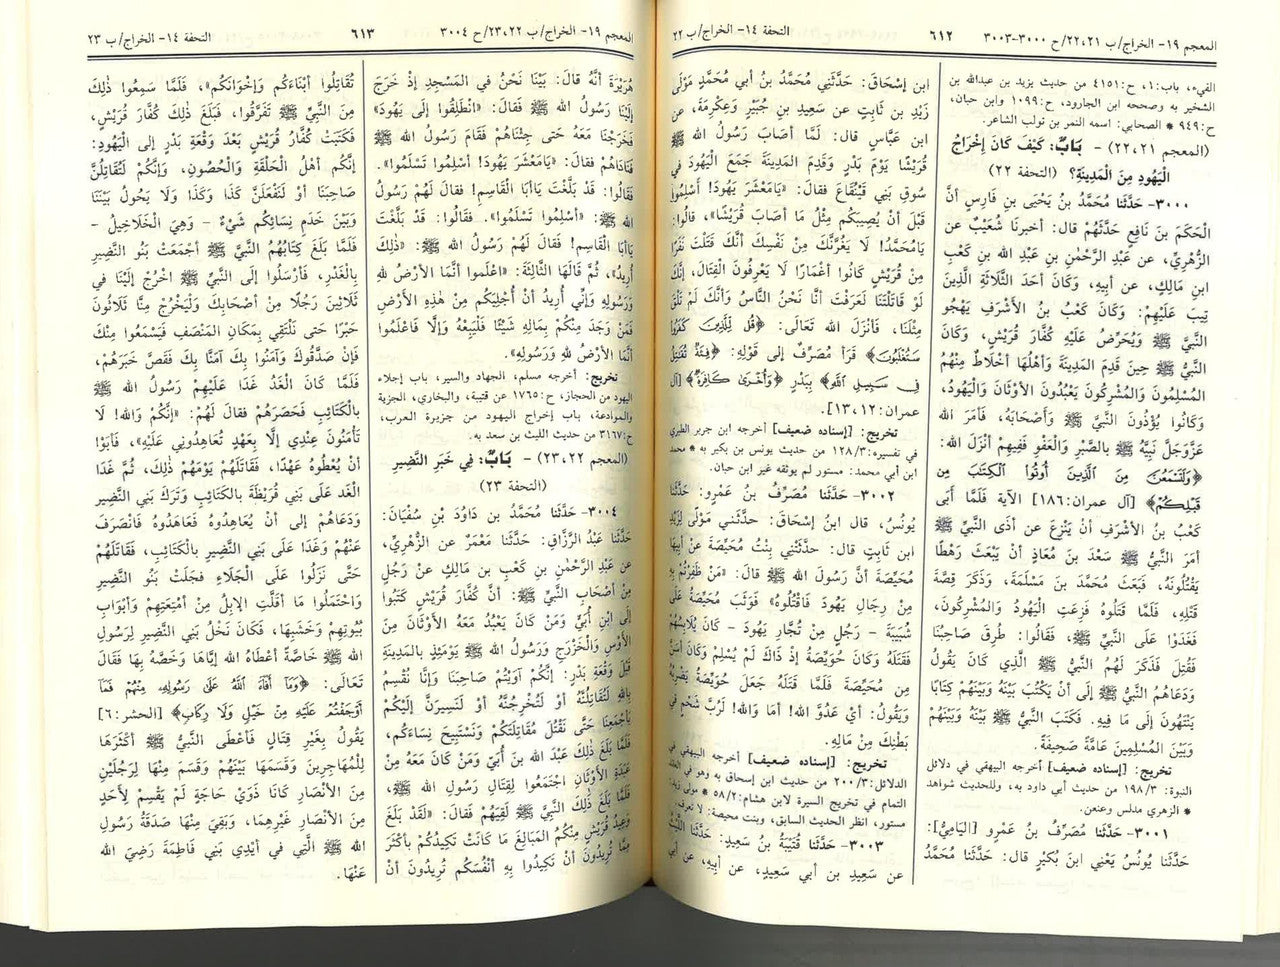 المعجم ١٩- الخراج/ب ٢٢،٢١/ح ٣٠٠٠-٣٠٠٣
٦١٢
التحفة ١٤- الخراج/ب ٢٢
الفيء، باب:١، ح:٤١٥١ من حديث يزيد بن عبدالله بن
الشخير به وصححه ابن الجارود، ح:١٠٩٩ وابن حبان،
ح:٩٤٩ * الصحابي: اسمه النمر بن تولب الشاعر.
(المعجم ٢٢،٢١) - بَابٌ: كَيْفَ كَانَ إِخْرَاجُ
الْيَهُودِ مِنَ الْمَدِينَةِ؟ (التحفة ٢٢)
٣٠٠٠- حَدَّثَنا مُحَمَّدُ بنُ يَحْيَى بنِ فَارِسٍ أنَّ
الْحَكَمَ بنَ نَافِعٍ حَدَّثَهُمْ قال: أخبرنَا شُعَيْبٌ عن
الزُّهْرِيِّ، عن عَبْدِ الرَّحْمٰنِ بنِ عَبْدِ الله بنِ كَعْبِ
ابنِ مَالِكٍ، عن أبِيهِ، وَكَانَ أحَدَ الثَّلَاثَةِ الَّذِينَ
تِيبَ عَلَيْهِمْ: وَكَانَ كَعْبُ بْنُ الأَشْرَفِ يَهْجُو
النَّبيَّ ﷺ وَيُحَرِّضُ عَلَيْهِ كُفَّارَ قُرَيْشٍ، وَكَانَ
النَّبيُّ ﷺ حِينَ قَدِمَ المَدِينَةَ وَأهْلُهَا أخْلَاطٌ مِنْهُمُ
المُسْلِمُونَ وَالمُشْرِكُونَ يَعْبُدُونَ الأَوْثَانَ وَالْيَهُودَ،
وَكَانُوا يُؤْذُونَ النَّبيَّ ﷺ وَأصْحَابَهُ، فَأمَرَ الله
عَزَّوَجَلَّ نَبِيَّهُ ﷺ بالصَّبْرِ وَالْعَفْوِ فَفِيهِمْ أنْزَلَ الله:
﴿وَلَتَسْمَعُنَّ مِنَ الَّذِينَ أُوتُوا الْكِتَٰبَ مِن
قَبْلِكُمْ﴾ [آل عمران:١٨٦] الآية فَلَمَّا أبَى
كَعْبُ بنُ الأشْرَفِ أنْ يَنْزِعَ عن أذَى النَّبيِّ ﷺ
أمَرَ النَّبيُّ ﷺ سَعْدَ بنَ مُعَاذٍ أنْ يَبْعَثَ رَهْطًا
يَقْتُلُونَهُ، فَبَعَثَ مُحَمَّدَ بنَ مَسْلَمَةَ، وَذَكَرَ قِصَّةَ
قَتْلِهِ، فَلَمَّا قَتَلُوهُ فَزِعَتِ الْيَهُودُ وَالمُشْرِكُونَ،
فَغَدَوْا عَلَى النَّبيِّ ﷺ، فَقَالُوا: طُرِقَ صَاحِبُنَا
فَقُتِلَ فَذَكَرَ لَهُمُ النَّبيُّ ﷺ الَّذِي كَانَ يَقُولُ
وَدَعَاهُمُ النَّبيُّ ﷺ إِلَى أنْ يَكْتُبَ بَيْنَهُ وَبَيْنَهُمْ كِتَابًا
يَنْتَهُونَ إِلَى مَا فِيهِ. فَكَتَبَ النَّبيُّ ﷺ بَيْنَهُ وَبَيْنَهُمْ
وَبَيْنَ المُسْلِمِينَ عَامَّةً صَحِيفَةً.
تخريج: [إسناده ضعيف] أخرجه البيهقي في دلائل
النبوة: ١٩٨/٣ من حديث أبي داود به، وللحديث شواهد
* الزهري مدلس وعنعن.
٣٠٠١- حَدَّثَنا مُصَرِّفُ بنُ عَمْرٍو [اليَامِيُّ]:
حَدَّثَنا يُونُسُ يَعْني ابنَ بُكَيْرٍ قال: حَدَّثَنا مُحَمَّدُ
ابن إسْحَاقَ: حَدَّثَني مُحَمَّدُ بنُ أبي مُحَمَّدٍ مَوْلَى
زَيْدِ بن ثَابِتٍ عن سَعِيدِ بنِ جُبَيْرٍ وَعِكْرِمَةَ، عن
ابن عَبَّاسٍ قال: لَمَّا أصَابَ رَسُولُ الله ﷺ
قُرَيْشًا يَوْمَ بَدْرٍ وَقَدِمَ المَدِينَةَ جَمَعَ الْيَهُودَ في
سُوقِ بَني قَيْنُقَاعَ فقالَ: «يَامَعْشَرَ يَهُودَ! أسْلِمُوا
قَبْلَ أنْ يُصِيبَكُم مِثْلُ مَا أصَابَ قُرَيْشًا»، قالُوا:
يَامُحَمَّدُ! لَا يَغُرَّنَّكَ مِنْ نَفْسِكَ أنَّكَ قَتَلْتَ نَفَرًا
مِنْ قُرَيْشٍ كَانُوا أغْمَارًا لَا يَعْرِفُونَ الْقِتَالَ، إنَّكَ
لَوْ قَاتَلْتَنَا لَعَرَفْتَ أنَّا نَحْنُ النَّاسُ وَأنَّكَ لَمْ تَلْقَ
مِثْلَنَا، فَأنْزَلَ الله تَعَالَى: ﴿قُل لِّلَّذِينَ كَفَرُوا
سَتُغْلَبُونَ﴾ قَرَأَ مُصَرِّفٌ إلى قَوْلِهِ: ﴿فِئَةٌ تُقَٰتِلُ
فِى سَبِيلِ اللَّهِ﴾ بِبَدْرٍ ﴿وَأُخْرَىٰ كَافِرَةٌ﴾ [آل
عمران:١٣،١٢].
تخريج: [إسناده ضعيف] أخرجه ابن جرير الطبري
في تفسيره: ١٢٨/٣ من حديث يونس بن بكير به * محمد
ابن أبي محمد: مستور لم يوثقه غير ابن حبان.
٣٠٠٢- حَدَّثَنا مُصَرِّفُ بنُ عَمْرٍو: حَدَّثَنا
يُونُسُ، قال ابنُ إسْحَاقَ: حَدَّثَني مَوْلًى لِزَيْدِ
ابن ثَابِتٍ قال: حَدَّثَتْنِي بِنْتُ مُحَيِّصَةَ عن أبِيهَا
مُحَيِّصَةَ أنَّ رَسُولَ الله ﷺ قالَ: «مَنْ ظَفِرْتُمْ بِهِ
مِنْ رِجَالِ يَهُودَ فَاقْتُلُوهُ» فَوَثَبَ مُحَيِّصَةُ عَلَى
شُبَيْبَةَ - رَجُلٍ مِنْ تُجَّارِ يَهُودَ - كَانَ يُلَابِسُهُمْ
فَقَتَلَهُ وَكَانَ حُوَيِّصَةُ إذْ ذَاكَ لَمْ يُسْلِمْ وَكَانَ أسَنَّ
مِن مُحَيِّصَةَ فَلَمَّا قَتَلَهُ جَعَلَ حُوَيِّصَةُ يَضْرِبُهُ
وَيَقُولُ: أيْ عَدُوَّ الله! أمَا وَالله! لَرُبَّ شَحْمٍ في
بَطْنِكَ مِنْ مَالِهِ.
تخريج: [إسناده ضعيف] أخرجه البيهقي في
الدلائل: ٢٠٠/٣ من حديث ابن إسحاق به وهو في
التمام في تخريج السيرة لابن هشام: ٥٨/٢ * مولى زيد:
مستور، انظر الحديث السابق، وبنت محيصة: لا تعرف.
٣٠٠٣- حَدَّثَنا قُتَيْبَةُ بنُ سَعِيدٍ: حَدَّثَنا اللَّيْثُ
عن سَعِيدِ بن أبي سَعِيدٍ، عن أبِيهِ، عن أبي
المعجم ١٩- الخراج/ب ٢٣،٢٢/ح ٣٠٠٤
٦١٣
التحفة ١٤- الخراج/ب ٢٣
هُرَيْرَةَ أنَّهُ قالَ: بَيْنَا نَحْنُ في المَسْجِدِ إذْ خَرَجَ
إلَيْنَا رَسُولُ الله ﷺ فَقالَ: «انْطَلِقُوا إلَى يَهُودَ»
فَخَرَجْنَا مَعَهُ حَتى جِئْنَاهُمْ فَقَامَ رَسُولُ الله ﷺ
فَنَادَاهُمْ فقالَ: «يَامَعْشَرَ يَهُودَ! أسْلِمُوا تَسْلَمُوا».
فَقَالُوا: قَدْ بَلَّغْتَ يَاأبَا الْقَاسِمِ! فقالَ لَهُمْ رَسُولُ
الله ﷺ: «أسْلِمُوا تَسْلَمُوا». فَقالُوا: قَدْ بَلَّغْتَ
يَاأبَا الْقَاسِمِ! فَقالَ لَهُمْ رَسُولُ الله ﷺ: «ذٰلِكَ
أُرِيدُ»، ثُمَّ قالَهَا الثَّالِثَةَ: «اعْلَمُوا أنَّمَا الأرْضُ لله
وَرَسُولِهِ وَإنِّي أُرِيدُ أنْ أُجْلِيَكُم مِنْ هٰذِهِ الأرْضِ
فَمَنْ وَجَدَ مِنْكُمْ بِمَالِهِ شَيْئًا فَلْيَبِعْهُ وَإلَّا فَاعْلَمُوا
أنَّمَا الأرْضُ لله وَرَسُولِهِ».
تخريج: أخرجه مسلم، الجهاد والسير، باب إجلاء
اليهود من الحجاز، ح:١٧٦٥ عن قتيبة، والبخاري، الجزية
والموادعة، باب إخراج اليهود من جزيرة العرب،
ح:٣١٦٧ من حديث الليث بن سعد به.
(المعجم ٢٣،٢٢) - بَابٌ: فِي خَبَرِ النَّضِيرِ
(التحفة ٢٣)
٣٠٠٤- حَدَّثَنا مُحَمَّدُ بنُ دَاوُدَ بْنِ سُفْيَانَ:
حَدَّثَنَا عَبْدُ الرَّزَّاقِ: حَدَّثَنا مَعْمَرٌ عن الزُّهْرِيِّ،
عن عَبْدِ الرَّحْمٰنِ بنِ كَعْبِ بن مَالِكٍ عن رَجُلٍ
مِنْ أصْحَابِ النَّبيِّ ﷺ: أنَّ كُفَّارَ قُرَيْشٍ كَتَبُوا
إلَى ابنِ أُبَيٍّ وَمَنْ كَانَ يَعْبُدُ مَعَهُ الأوْثَانَ مِنَ
الأوْسِ وَالْخَزْرَجِ وَرَسُولُ الله ﷺ يَوْمَئِذٍ بالمَدِينَةِ
قَبْلَ وَقْعَةِ بَدْرٍ: إنَّكُمْ آوَيْتُمْ صَاحِبَنَا وَإنَّا نُقْسِمُ
بالله لَتُقَاتِلُنَّهُ أوْ لَتُخْرِجُنَّهُ أوْ لَنَسِيرَنَّ إلَيْكُمْ
بِأجْمَعِنَا حَتَّى نَقْتُلَ مُقَاتِلَتَكُمْ وَنَسْتَبِيحَ نِسَاءَكُم،
فَلَمَّا بَلَغَ ذٰلِكَ عَبْدَ الله بنَ أُبَيٍّ وَمَنْ كَانَ مَعَهُ مِنْ
عَبَدَةِ الأوْثَانِ، اجْتَمَعُوا لِقِتَالِ رَسُولِ الله ﷺ،
فَلَمَّا بَلَغَ ذٰلِكَ النَّبيَّ ﷺ لَقِيَهُمْ فَقَالَ: «لَقَدْ بَلَغَ
وَعِيدُ قُرَيْشٍ مِنْكُمُ المَبَالِغَ مَا كَانَتْ تَكِيدُكُمْ بِأكْثَرَ
مِمَّا تُرِيدُونَ أنْ تَكِيدُوا بِهِ أنْفُسَكُم تُرِيدُونَ أنْ
تُقَاتِلُوا أبْنَاءَكُم وَإخْوَانَكُم»، فَلَمَّا سَمِعُوا ذٰلِكَ
مِنَ النَّبيِّ ﷺ تَفَرَّقُوا، فَبَلَغَ ذٰلِكَ كُفَّارَ قُرَيْشٍ،
فَكَتَبَتْ كُفَّارُ قُرَيْشٍ بَعْدَ وَقْعَةِ بَدْرٍ إلى الْيَهُودِ:
إنَّكُم أهْلُ الْحَلْقَةِ وَالْحُصُونِ، وَإنَّكُمْ لَتُقَاتِلُنَّ
صَاحِبَنَا أوْ لَنَفْعَلَنَّ كَذَا وَكَذَا وَلَا يَحُولُ بَيْنَنَا
وَبَيْنَ خَدَمِ نِسَائِكُم شَيْءٌ - وَهِيَ الْخَلَاخِيلُ -
فَلَمَّا بَلَغَ كِتَابُهُمُ النَّبيَّ ﷺ أجْمَعَتْ بَنُو النَّضِيرِ
بِالْغَدْرِ، فَأرْسَلُوا إلَى النَّبيِّ ﷺ اخْرُجْ إلَيْنَا في
ثَلَاثِينَ رَجُلًا مِنْ أصْحَابِكَ وَلْيَخْرُجْ مِنَّا ثَلَاثُونَ
حَبْرًا حَتى نَلْتَقِي بِمَكَانِ المَنْصَفِ فَيَسْمَعُوا مِنْكَ
فَإنْ صَدَّقُوكَ وَآمَنُوا بِكَ آمَنَّا بِكَ فَقَصَّ خَبَرَهُمْ،
فَلَمَّا كَانَ الْغَدُ غَدَا عَلَيْهِمْ رَسُولُ الله ﷺ
بالْكَتَائِبِ فَحَصَرَهُمْ فقالَ لَهُمْ: «إنَّكُمْ وَالله! لَا
تَأْمَنُونَ عِنْدِي إلَّا بِعَهْدٍ تُعَاهِدُونِي عَلَيْهِ»، فَأبَوْا
أنْ يُعْطُوهُ عَهْدًا، فَقَاتَلَهُمْ يَوْمَهُمْ ذٰلِكَ، ثُمَّ غَدَا
الْغَدَ عَلَى بَنِي قُرَيْظَةَ بالكَتَائِبِ وَتَرَكَ بَني النَّضِيرِ
وَدَعَاهُمْ إلى أنْ يُعَاهِدُوهُ فَعَاهَدُوهُ فَانْصَرَفَ
عَنْهُمْ وَغَدَا عَلَى بَنِي النَّضِيرِ بالْكَتَائِبِ، فَقَاتَلَهُمْ
حَتى نَزَلُوا عَلَى الْجَلَاءِ فَجَلَتْ بَنُو النَّضِيرِ
وَاحْتَمَلُوا مَا أقَلَّتِ الإبِلُ مِنْ أمْتِعَتِهِمْ وَأبْوَابِ
بُيُوتِهِمْ وَخَشَبِهَا، فَكَانَ نَخْلُ بَنِي النَّضِيرِ لِرَسُولِ
الله ﷺ خَاصَّةً أعْطَاهُ الله إيَّاهَا وَخَصَّهُ بِهَا فَقَالَ
تَعَالَى: ﴿وَمَا أَفَاءَ اللَّهُ عَلَىٰ رَسُولِهِ مِنْهُمْ فَمَا
أَوْجَفْتُمْ عَلَيْهِ مِنْ خَيْلٍ وَلَا رِكَابٍ﴾ [الحشر:٦]
يَقُولُ بِغَيْرِ قِتَالٍ فَأعْطَى النَّبيُّ ﷺ أكْثَرَهَا
لِلْمُهَاجِرِينَ وَقَسَمَهَا بَيْنَهُمْ وَقَسَمَ مِنْهَا لِرَجُلَيْنِ
مِنَ الأنْصَارِ كَانَا ذَوَيْ حَاجَةٍ لَمْ يَقْسِمْ لِأحَدٍ
مِنَ الأنْصَارِ غَيْرِهِمَا، وَبَقِيَ مِنْهَا صَدَقَةُ رَسُولِ
الله ﷺ الَّتِي في أيْدِي بَنِي فَاطِمَةَ رَضِيَ الله
عَنْهَا.